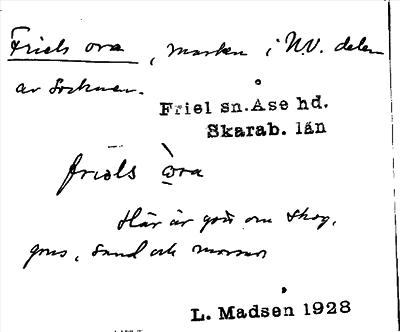 Friels ora, marken i N.V. delen
av socknen.
Friel sn. Åse hd.
Skarab. län
friəls ɷ̀ra
Här är gott om skog,
grus, sand och mossar
L. Madsen 1928